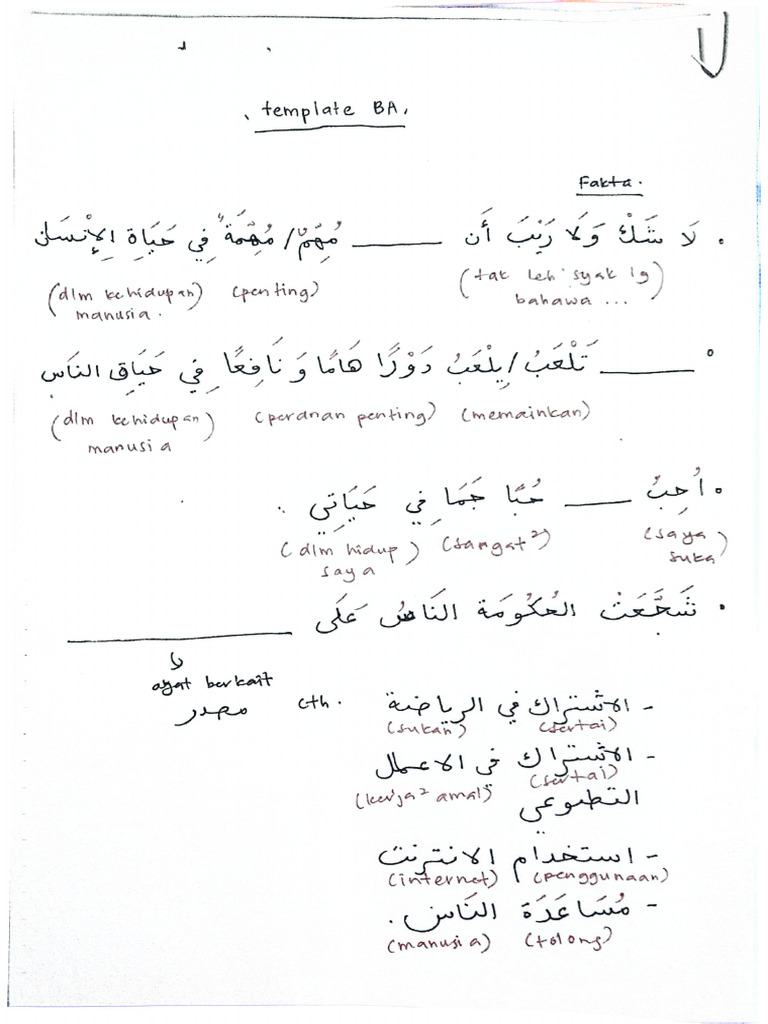 template BA.
Fakta.
• لَا شَكَّ وَلَا رَيْبَ أَن ______ مُهِمٌ/ مُهِمَةٌ فِي حَيَاةِ الإِنْسَان
(tak leh syak lg (penting) (dlm kehidupan
bahawa ...) manusia.)
• ______ تَلْعَبُ/يلْعَبُ دَوْرًا هَامًا وَنَافِعًا فِي حَيَاةِ النَاسِ
(memainkan) (peranan penting) (dlm kehidupan
manusia)
• أُحِبُ ____ حُبًا جَمَا فِي حَيَاتِي.
(saya (sangat²) (dlm hidup
suka) saya)
• شَجَّعَتْ الحُكُوْمَة النَاسُ عَلَى ____________
ayat berkait
مصدر
cth. - الاشتراك في الرياضة
(sertai) (sukan)
- الاشتراك في الاعمال
(sertai)
التطوعي
(kerja² amal)
- استخدام الانترنت
(penggunaan) (internet)
- مُسَاعَدَة النَاس.
(tolong) (manusia)